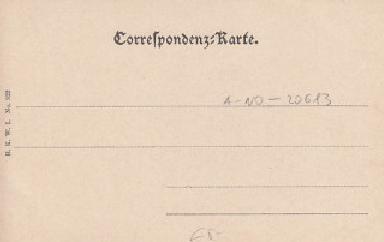 Correspondenz-Karte.
A-NO-20613
B. K. W. I. No. 939